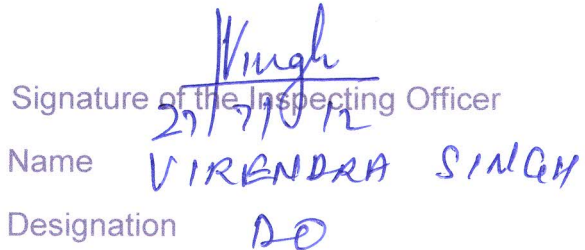 Vingh
Signature of the Inspecting Officer
27/7/12
Name VIRENDRA SINGH
Designation DO